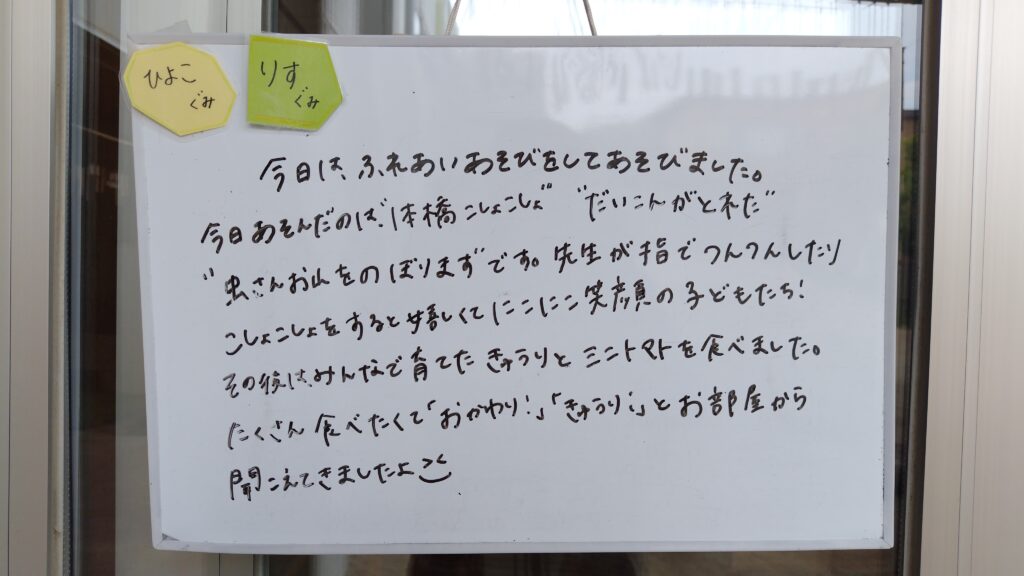 ひよこ
ぐみ
りす
ぐみ
今日は、ふれあいあそびをしてあそびました。
今日あそんだのは"一本橋こしょこしょ" "だいこんがとれた"
"虫さんお山をのぼります"です。先生が指でつんつんしたり
こしょこしょをすると嬉しくてにこにこ笑顔の子どもたち!
その後は、みんなで育てたきゅうりとミニトマトを食べました。
たくさん食べたくて「おかわり!」「きゅうり!」とお部屋から
聞こえてきましたよ